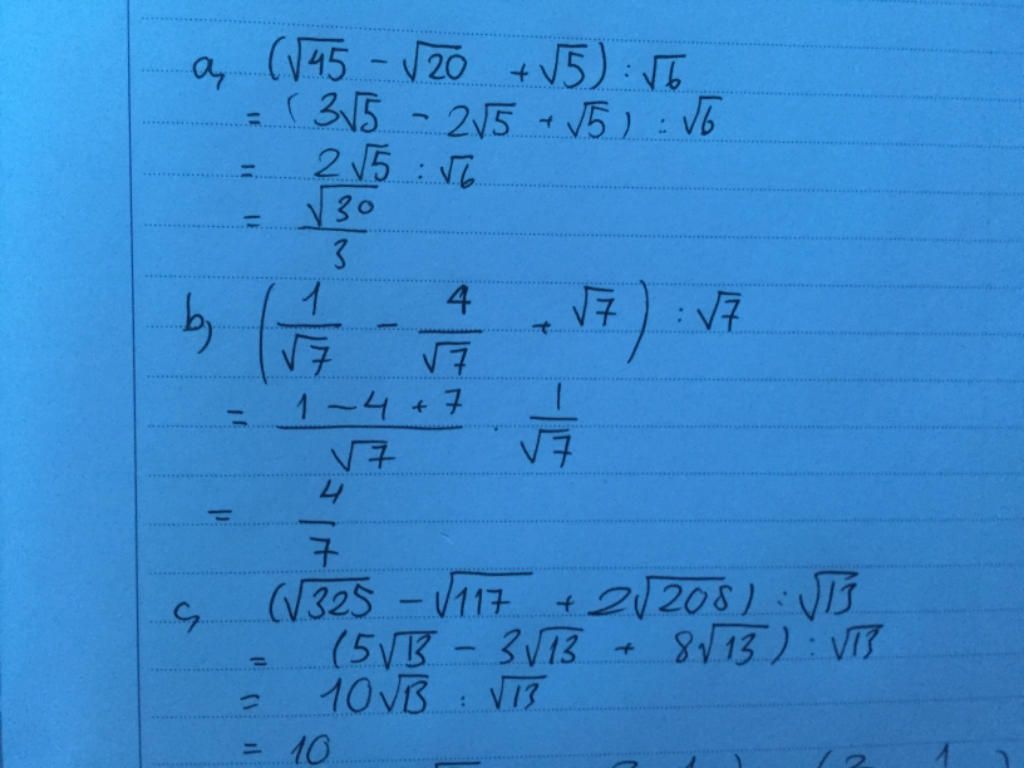 a, (√45 - √20 + √5) : √6
= (3√5 - 2√5 + √5) : √6
= 2√5 : √6
= √30/3
b, (1/√7 - 4/√7 + √7) : √7
= (1 - 4 + 7)/√7 . 1/√7
= 4/7
c, (√325 - √117 + 2√208) : √13
= (5√13 - 3√13 + 8√13) : √13
= 10√13 : √13
= 10